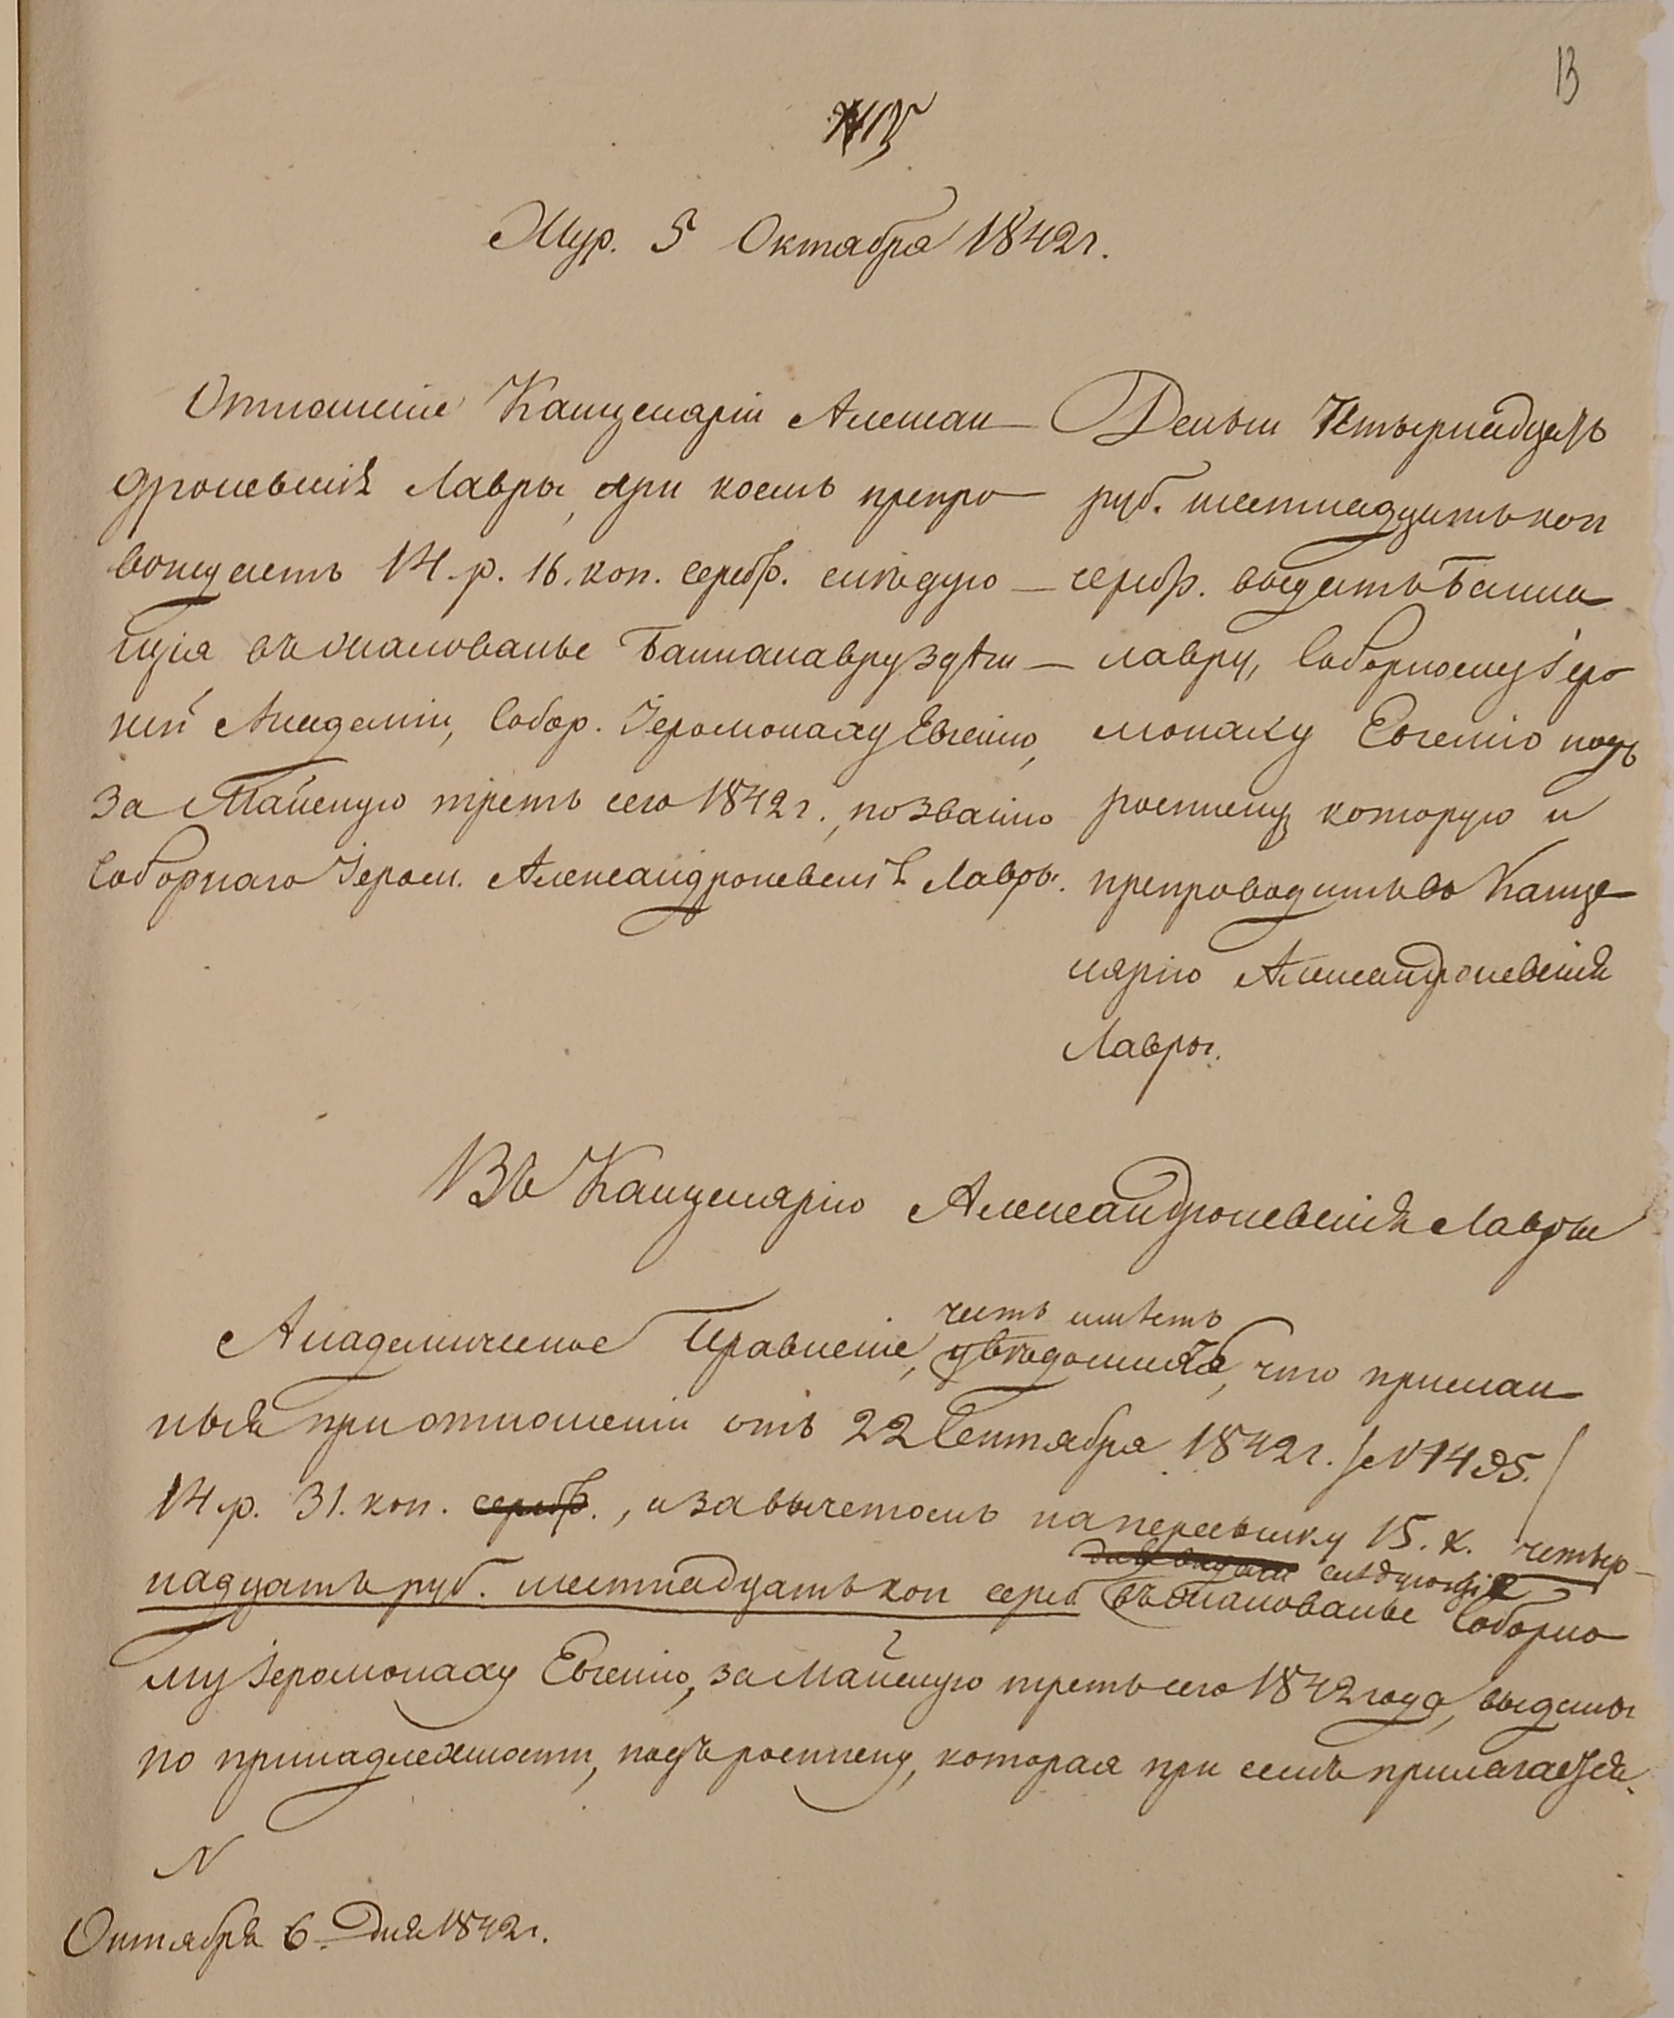 13
Жур. 5 Октября 1842 г.
Отношеніе Канцеляріи Алексан-
дроневскія Лавры, при коемъ препро-
вождаетъ 14. р. 16. коп. серебр. слѣдую-
щія въ жалованье Баккалавру здѣш-
ней Академіи, Собор. Іеромонаху Евгенію,
за Майскую треть сего 1842 г., по званію
Соборнаго Іером. Александроневскія Лавры.
Деньги Четырнадцать
руб. шестнадцать коп
серебр. выдать Бакка-
лавру, Соборному Іеро
монаху Евгенію подъ
росписку которую и
препроводить въ Канце-
лярію Александроневскія
Лавры.
Въ Канцелярію Александроневскія Лавры
честь имѣетъ
Академическое Правленіе, увѣдомить, что прислан-
ныя при отношеніи отъ 22 Сентября 1842 г. /№ 1495./
14 р. 31. коп. серебр., и за вычетомъ на пересылку 15. к. четыр-
слѣдующія
надцать руб. шестнадцать коп сереб въ жалованье Соборно
му Іеромонаху Евгенію, за Майскую треть сего 1842 года, выданы
по принадлежности, подъ росписку, которая при семъ прилагается.
N
Октября 6 дня 1842 г.